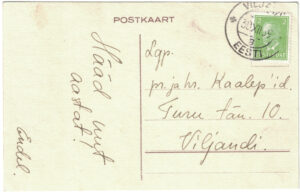 POSTKAART
EESTI
Hääd uut
aastat!
Endel.
Lgp.
pr. jahr. Kaalep'id.
Turu tän. 10.
Viljandi.